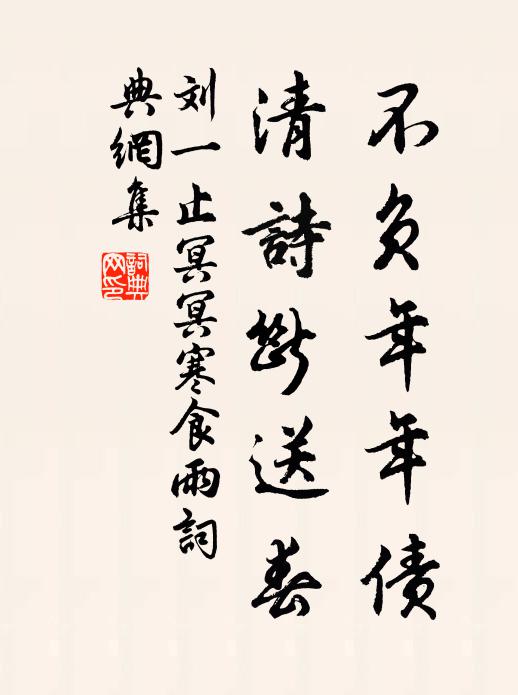 不负年年债
清詩断送春
刘一止冥冥寒食雨詞
典網集
詞典网印